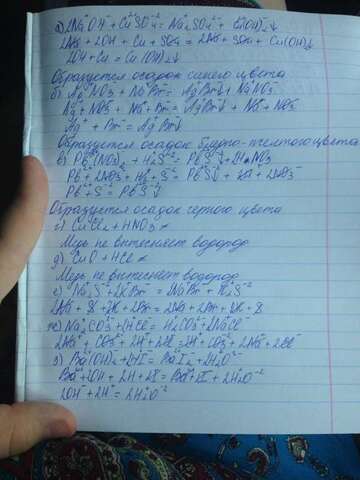 а) 2Na⁺OH⁻ + Cu⁺²SO₄⁻² = Na₂⁺SO₄⁻² + Cu(OH)₂↓
2Na⁺ + 2OH⁻ + Cu + SO₄ = 2Na⁺ + SO₄ + Cu(OH)↓
2OH + Cu = Cu(OH)₂↓
Образуется осадок синего цвета
б) Ag⁺NO₃⁻ + Na⁺Br⁻ = Ag⁺Br⁻↓ + Na⁺NO₃⁻
Ag⁺ + NO₃⁻ + Na⁺ + Br⁻ = Ag⁺Br⁻↓ + Na⁺ + NO₃⁻
Ag⁺ + Br⁻ = Ag⁺Br↓
Образуется осадок бледно-желтого цвета
в) Pb⁺²(NO₃)₂ + H₂S⁻² = Pb⁺²S⁻²↓ + 2H⁺NO₃
Pb⁺² + 2NO₃⁻ + H₂⁺ + S⁻² = PbS↓ + 2H⁺ + 2NO₃⁻
Pb⁺² + S⁻² = PbS↓
Образуется осадок черного цвета
г) CuCl₂ + HNO₃ ≠
Медь не вытесняет водород
д) CuO + HCl ≠
Медь не вытесняет водород
е) Na₂⁺S⁻² + 2K⁺Br⁻ = 2Na⁺Br⁻ + K₂⁺S⁻²
2Na⁺ + S + 2K + 2Br = 2Na + 2Br + 2K + S
ж) Na₂⁺CO₃⁻² + 2HCl = H₂⁺CO₃⁻² + 2Na⁺Cl⁻
2Na⁺ + CO₃⁻² + 2H⁺ + 2Cl⁻ = 2H⁺ + CO₃⁻² + 2Na⁺ + 2Cl⁻
з) Ba⁺²(OH)₂ + 2HI = Ba⁺²I₂ + 2H₂O⁻²
Ba⁺² + 2OH + 2H + 2I = Ba⁺² + 2I + 2H₂O⁻²
2OH⁻ + 2H⁺ = 2H₂O⁻²